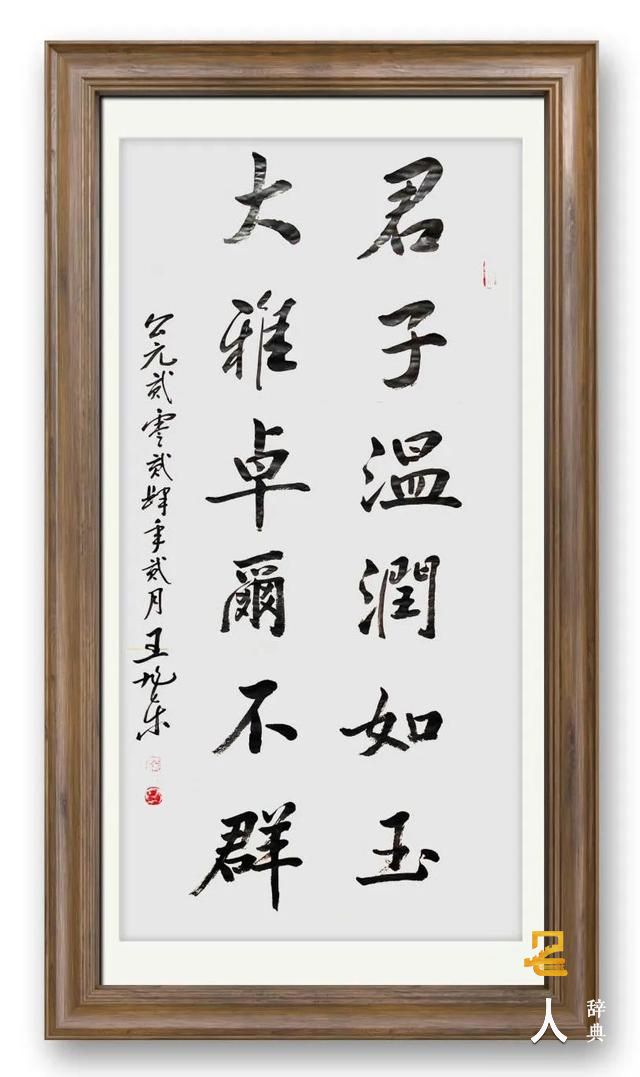 君子温潤如玉
大雅卓爾不群
公元贰零贰肆年贰月
王旭东
名人
辞典